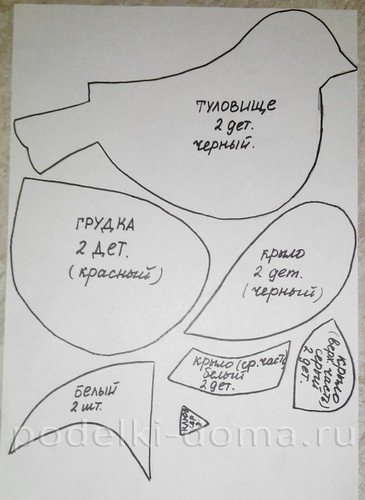 ТУЛОВИЩЕ
2 дет.
черный.
ГРУДКА
2 ДЕТ.
(красный)
крыло
2 дет.
(черный)
крыло (ср. часть)
белый
2 дет.
крыло
(верх. часть)
серый
2 дет.
БЕЛЫЙ
2 шт.
клюв
podelki-doma.ru